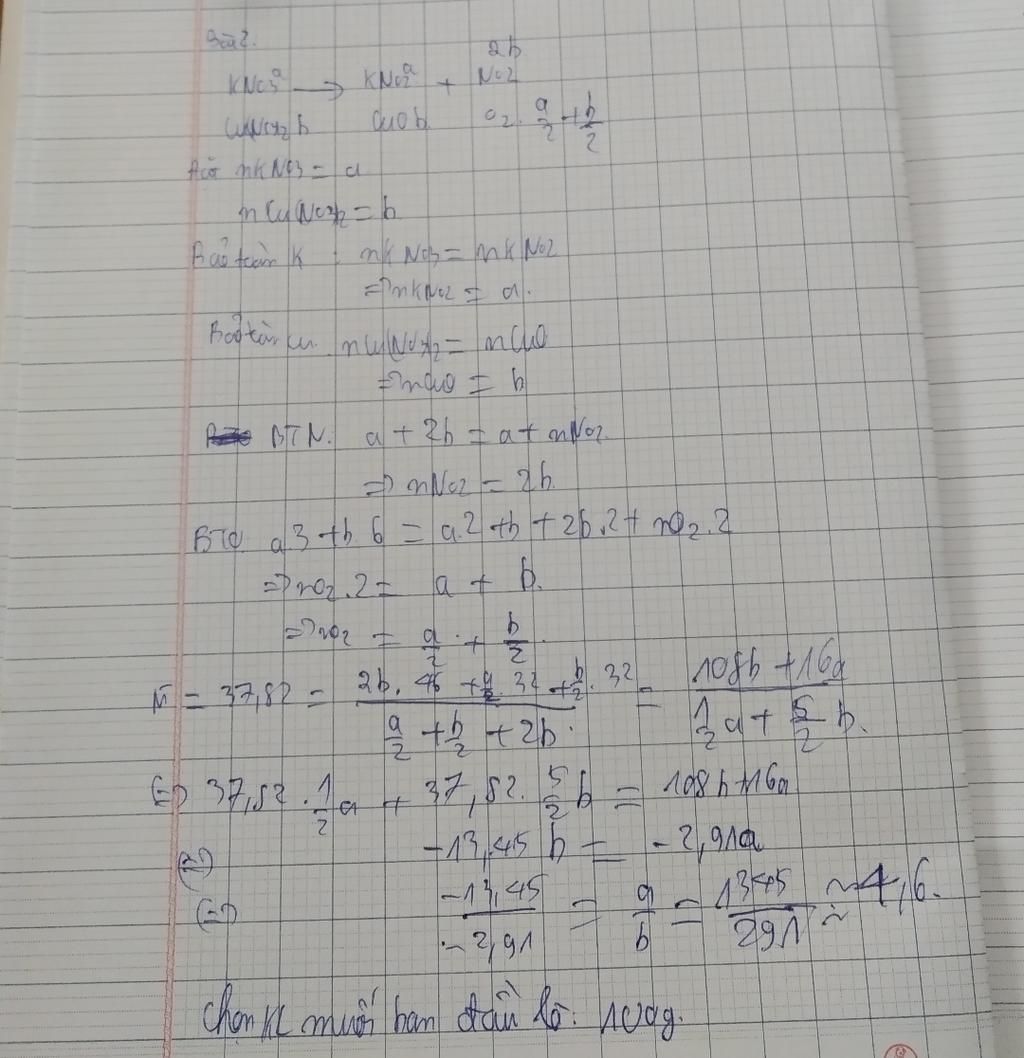 Bài 2.
2b
KNO3 a → KNO2 a + NO2
Cu(NO3)2 b CuO b O2. a/2 + b/2
nKNO3 = a
nCu(NO3)2 = b
Bảo toàn K : nKNO3 = nKNO2
=> nKNO2 = a.
Bảo toàn Cu. nCu(NO3)2 = nCuO
=> nCuO = b
BTN. a + 2b = a + nNO2
=> nNO2 = 2b
BTO a3 + b.6 = a.2 + b + 2b.2 + nO2.2
=> nO2.2 = a + b.
=> nO2 = a/2 + b/2.
M̄ = 37,82 = (2b.46 + a/2.32 + b/2.32)/(a/2 + b/2 + 2b) = (108b + 16a)/(1/2a + 5/2b.)
(=) 37,82.1/2a + 37,82.5/2b = 108b + 16a
(=) -13,45b = -2,91a
(=) -13,45/-2,91 = a/b = 1345/291 ≈ 4,6.
Chọn KL muối ban đầu là: 100g.